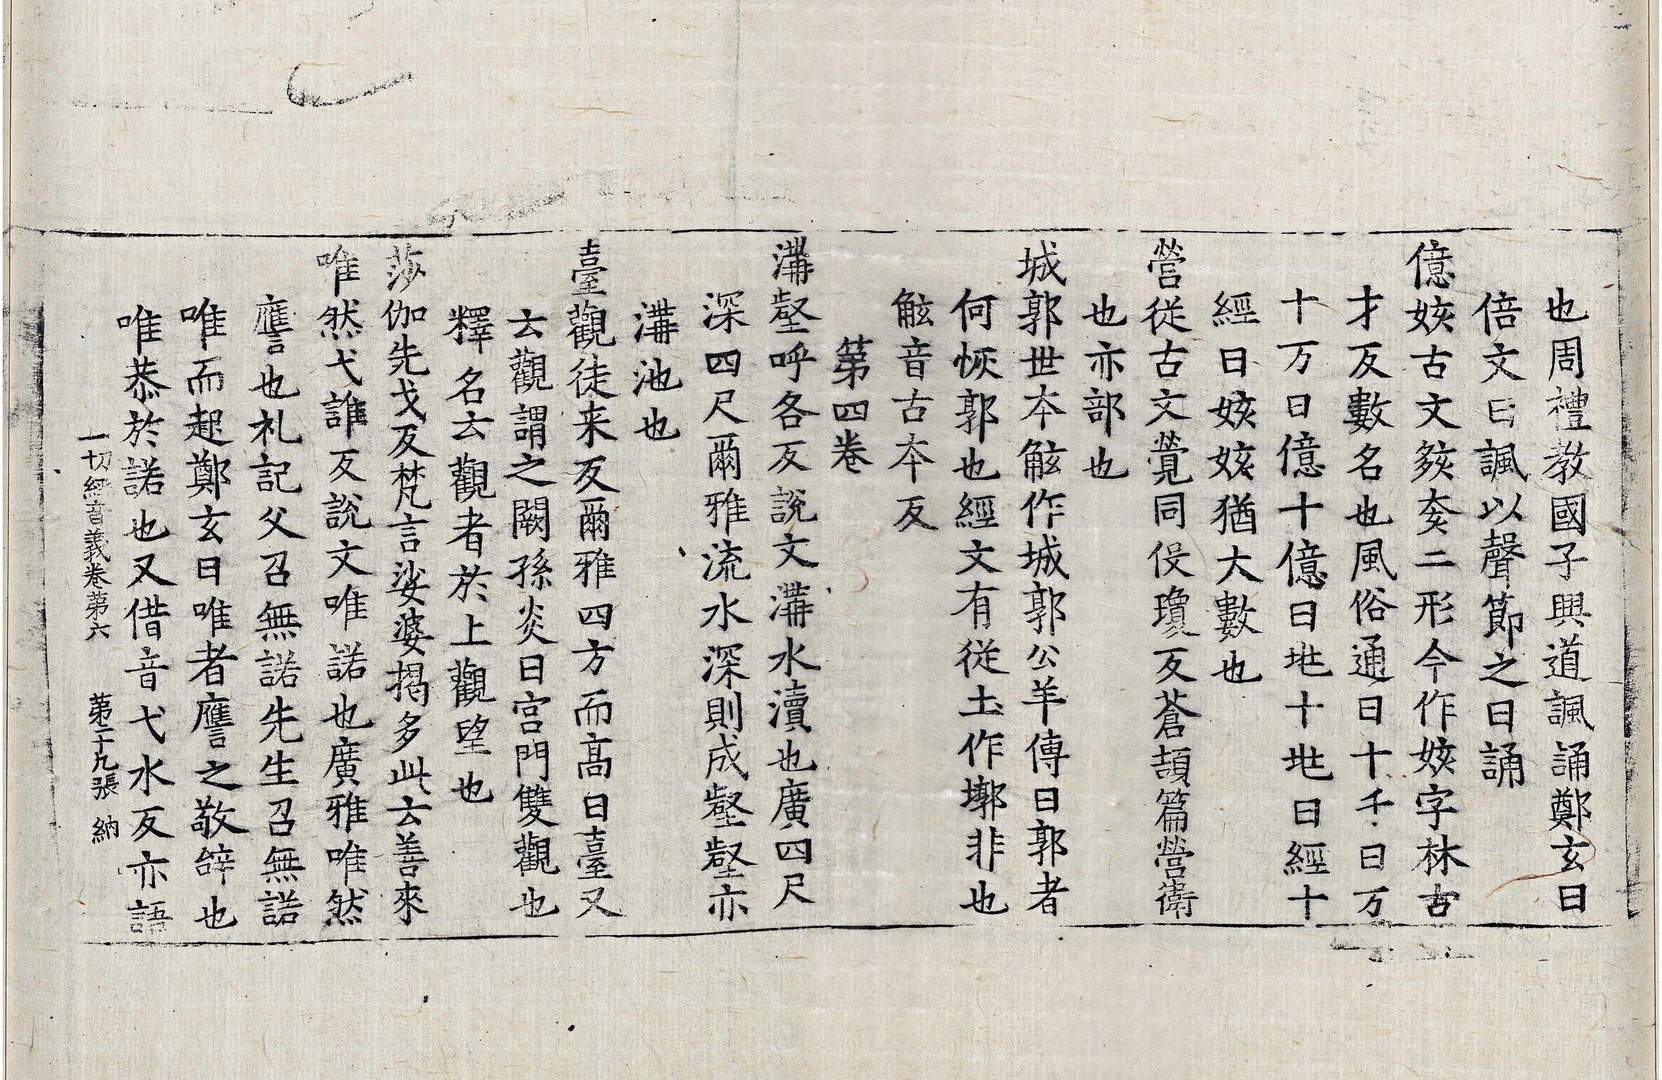 也周禮教國子興道諷誦鄭玄曰
倍文曰諷以聲節之曰誦
億姟古文㚊奒二形今作姟字林古
才反數名也風俗通曰十千曰万
十万曰億十億曰兆十兆曰經十
經曰姟姟猶大數也
營從古文覮同役瓊反蒼頡篇營衛
也亦部也
城郭世夲䱟作城郭公羊傳曰郭者
何恢郭也經文有從土作墎非也
䱟音古夲反
第四卷
溝壑呼各反說文溝水瀆也廣四尺
深四尺爾雅流水深則成壑壑亦
溝池也
臺觀徒来反爾雅四方而高曰臺又
云觀謂之闕孫炎曰宮門雙觀也
釋名云觀者於上觀望也
莎伽先戈反梵言娑婆揭多此云善來
唯然弋誰反說文唯諾也廣雅唯然
譍也礼記父召無諾先生召無諾
唯而起鄭玄曰唯者譍之敬辝也
唯恭於諾也又借音弋水反亦語
一切經音義卷第六 第二十九張 納